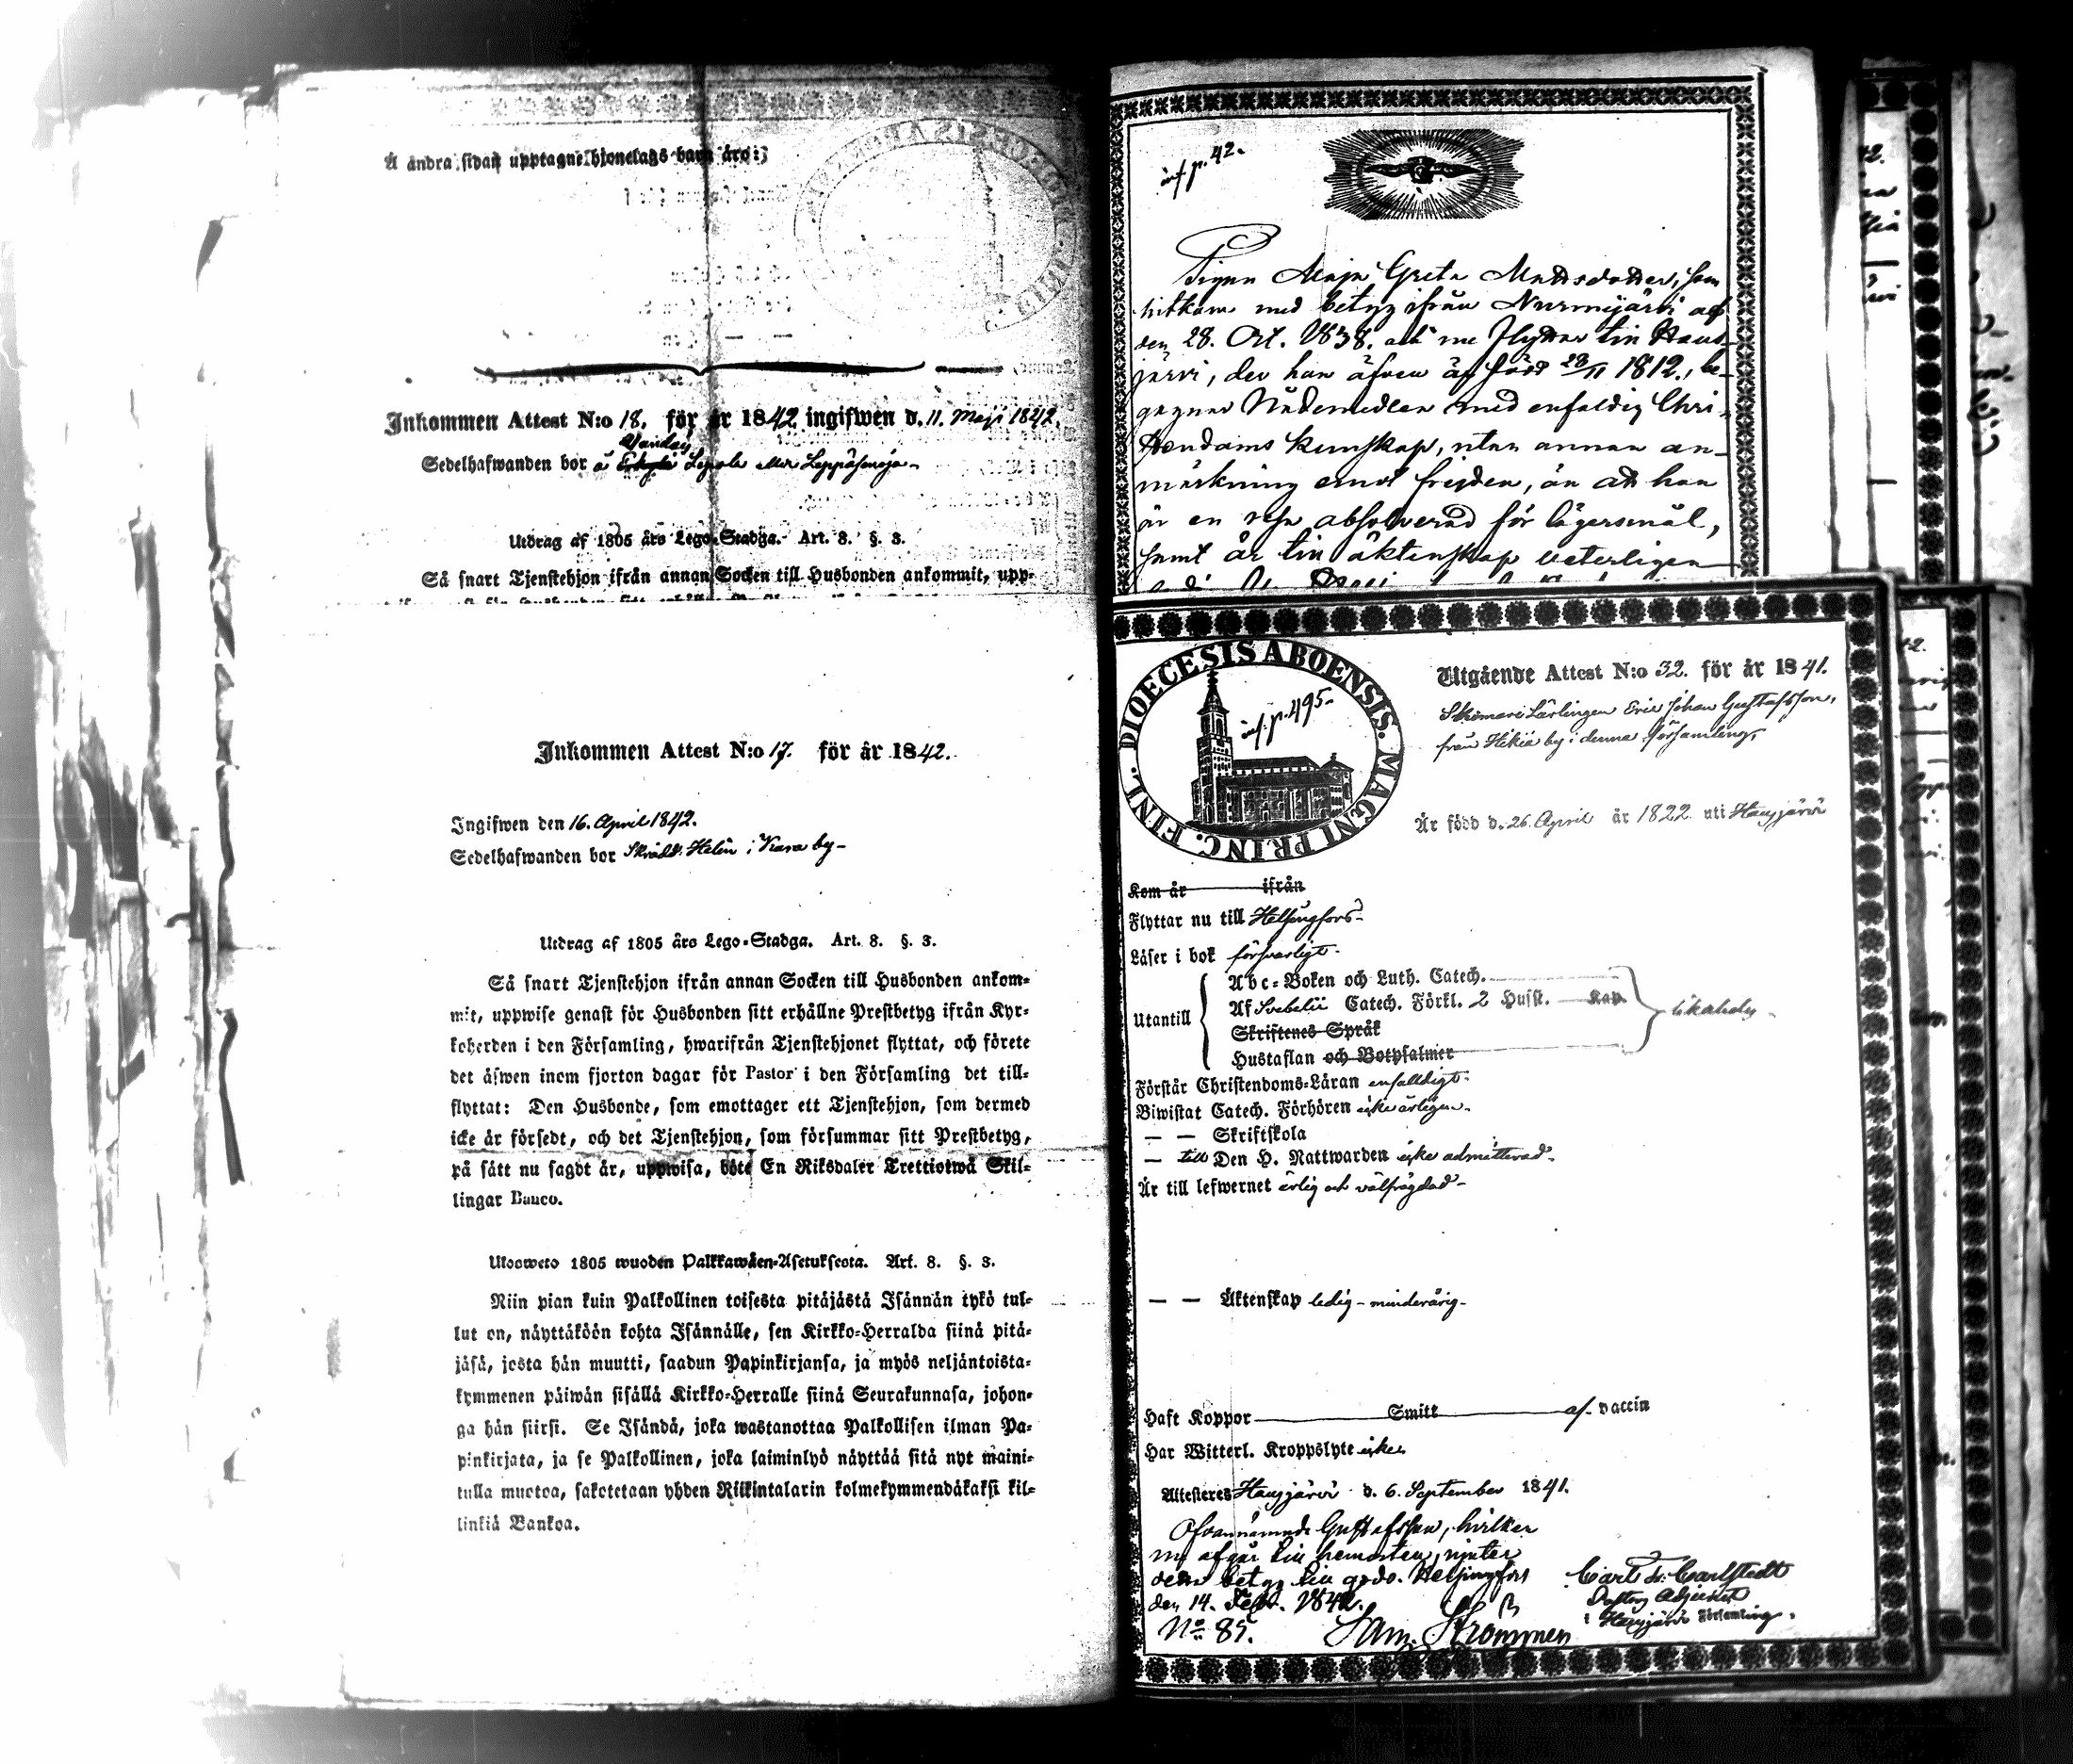 Å andra sidan upptagne hjonelags barn äro:
Inkommen Attest N:o 18. för år 1842 ingifwen d. 11. Maji 1842.
Sedelhafwanden bor å Lepola
Utdrag af 1805 års Lego-Stadga. Art. 8. §. 3.
Så snart Tjenstehjon ifrån annan Socken till Husbonden ankommit, upp-
Inkommen Attest N:o 17. för år 1842.
Ingifwen den 16. April 1842.
Sedelhafwanden bor Skrädd. Helin i Kara by
Utdrag af 1805 års Lego-Stadga. Art. 8. §. 3.
Så snart Tjenstehjon ifrån annan Socken till Husbonden ankom-
mit, uppwise genast för Husbonden sitt erhållne Prestbetyg ifrån Kyr-
koherden i den Församling, hwarifrån Tjenstehjonet flyttat, och förete
det äfwen inom fjorton dagar för Pastor i den Församling det till-
flyttat: Den Husbonde, som emottager ett Tjenstehjon, som dermed
icke är försedt, och det Tjenstehjon, som försummar sitt Prestbetyg,
på sätt nu sagdt är, uppwisa, böte En Riksdaler Trettiotwå Skil-
lingar Banco.
Ulosweto 1805 wuoden Palkkawäen-Asetuksesta. Art. 8. §. 3.
Niin pian kuin Palkollinen toisesta pitäjästä Isännän tykö tul-
lut on, näyttäköön kohta Isännälle, sen Kirkko-Herralda siinä pitä-
jäsä, josta hän muutti, saadun Papinkirjansa, ja myös neljäntoista-
kymmenen päiwän sisällä Kirkko-Herralle siinä Seurakunnasa, johon-
ga hän siirsi. Se Isändä, joka wastanottaa Palkollisen ilman Pa-
pinkirjata, ja se Palkollinen, joka laiminlyö näyttää sitä nyt maini-
tulla muotoa, sakotetaan yhden Riikintalarin kolmekymmendäkaksi kil-
linkiä Bankoa.
inf. p. 42.
Pigan Maja Greta Mattsdotter, som
hitkom med betyg ifrån Nurmijärvi af
den 28. Oct. 1838. och nu flyttar till Haus-
järvi, der hon äfven är född 28/11 1812., be-
gagnar Nådemedlen med enfaldig Chri-
stendoms kunskap, utan annan an-
märkning emot frejden, än att hon
är en resa absolverad för lägersmål,
samt är till äktenskap veterligen
DIOECESIS ABOENSIS. MAGNI PRINC. FINL.
inf. p. 495.
Utgående Attest N:o 32. för år 1841.
Skomare Lärlingen Eric Johan Gustafsson,
från Hikiä by i denna församling,
Är född d. 26. April år 1822 uti Hausjärvi
Kom år ifrån
Flyttar nu till Helsingfors
Läser i bok försvarligt.
Utantill
Abc-Boken och Luth. Catech.
Af Svebelii Catech. Förkl. 2 Husst. Kap.
Skriftenes Språk
Hustaflan och Botpsalmer
Förstår Christendoms-Läran enfalldigt.
Biwistat Catech. Förhören icke årligen.
— — Skriftskola
— till Den H. Nattwarden icke admitterad.
Är till lefwernet ärlig och välfrägdad
— — Äktenskap ledig - minderårig
Haft Koppor Smitt af vaccin
Har Witterl. Kroppslyte icke
Attesteres Hausjärvi d. 6. September 1841.
Carl Fr. Carlstedt
Pastors Adjunct
i Hausjärvi Församling.
Ofvannämnde Gustafsson, hvilken
nu afgår till hemorten, njuter
detta betyg till godo. Helsingfors
den 14. Febr. 1842.
No 85.
Sam. Strömmer